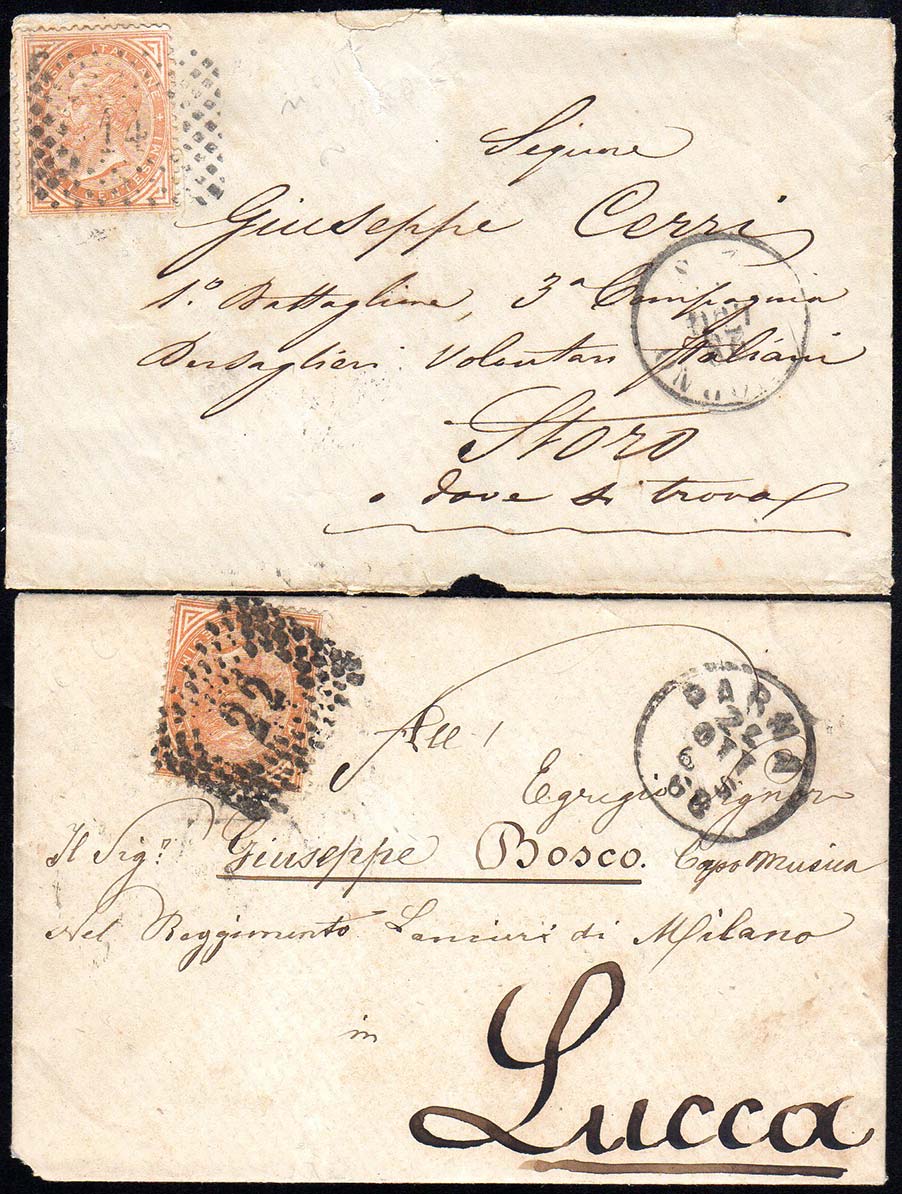 14
Signore
Giuseppe Cerri
1.º Battaglione, 3ª Compagnia
Bersaglieri Volontari Italiani
Storo
o dove si trova
22
PARMA
22
OTT
69
All'
Egregio Signor
Il Sig.r Giuseppe Bosco. Capo Musica
Nel Reggimento Lancieri di Milano
in
Lucca